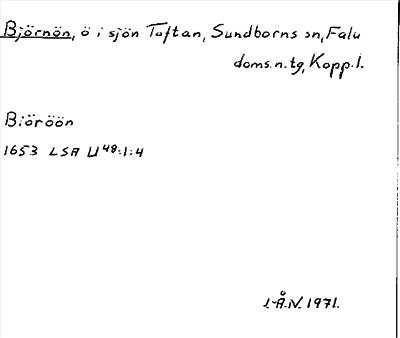 Björnön, ö i sjön Toftan, Sundborns sn, Falu
doms.n.tg, Kopp.l.
Biöröön
1653 LSA U48:1:4
I-Å.N. 1971.